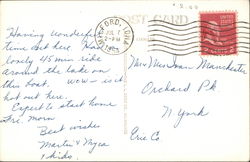 POST CARD
Having wonderful
time out here. Had
lovely 45 min ride
around the lake on
this boat. wow - is it
hot out here.
Expect to start home
Fri. morn
Best wishes
Martin & Myra
& kids.
JUL 7
1953
Mr & Mrs Manchester
Orchard Pk
N York
Erie Co